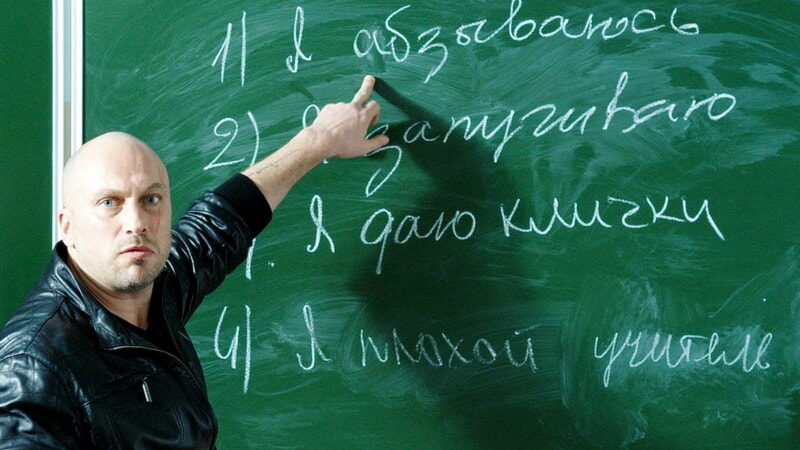 1) Я абзываюсь
2) Я запугиваю
Я даю клички
4) Я плохой учитель